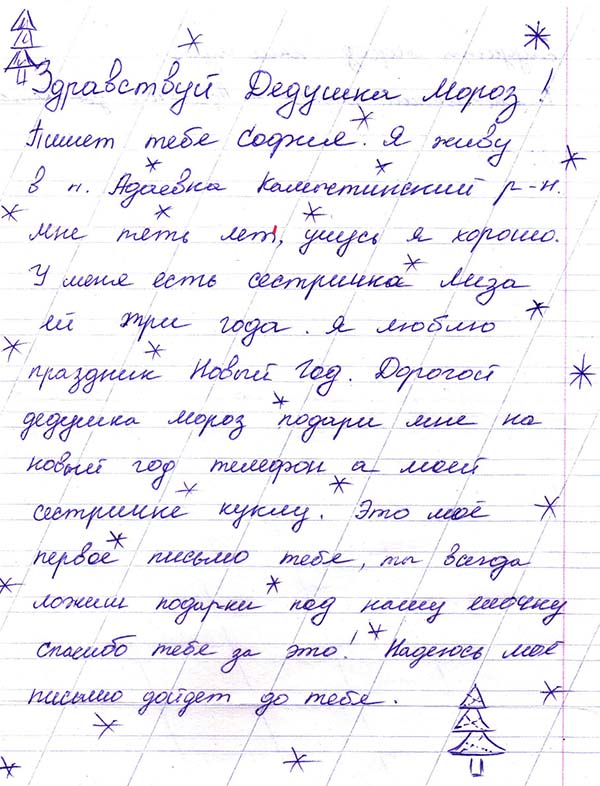 Здравствуй Дедушка Мороз!
Пишет тебе София. Я живу
в п. Адаевка Камыстинский р-н.
мне пять лет, учусь я хорошо.
У меня есть сестричка Лиза
ей три года. Я люблю
праздник Новый Год. Дорогой
дедушка мороз подари мне на
новый год телефон а моей
сестричке куклу. Это моё
первое письмо тебе, ты всегда
ложиш подарки под нашу ёлочку
спасибо тебе за это! Надеюсь моё
письмо дойдет до тебе.